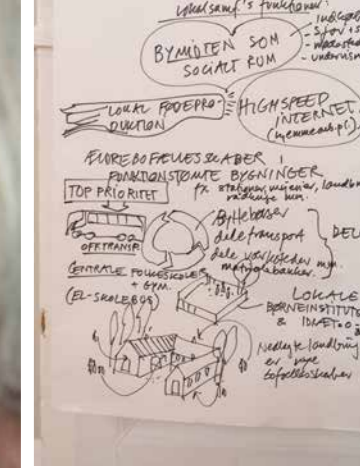 Lokalsamf.'s funktioner:
BYMIDTEN SOM
SOCIALT RUM
LOKAL FØDEPRO-
DUKTION
HIGHSPEED
INTERNET
(hjemmearb.pl.)
ÆLDREBOFÆLLESSKABER I
FUNKTIONSTØMTE BYGNINGER
fx stationer, mejerier, landbr
rådhuse mm.
TOP PRIORITET
OFF.TRANSP.
Byttebørser
deletransport
dele værksteder mm.
DEL
CENTRALE FOLKESKOLER
+ GYM.
(EL-SKOLEBUS)
LOKALE
BØRNEINSTITUT
& IDRÆT
Nedlagte landbrug
er nye
bofællesskaber